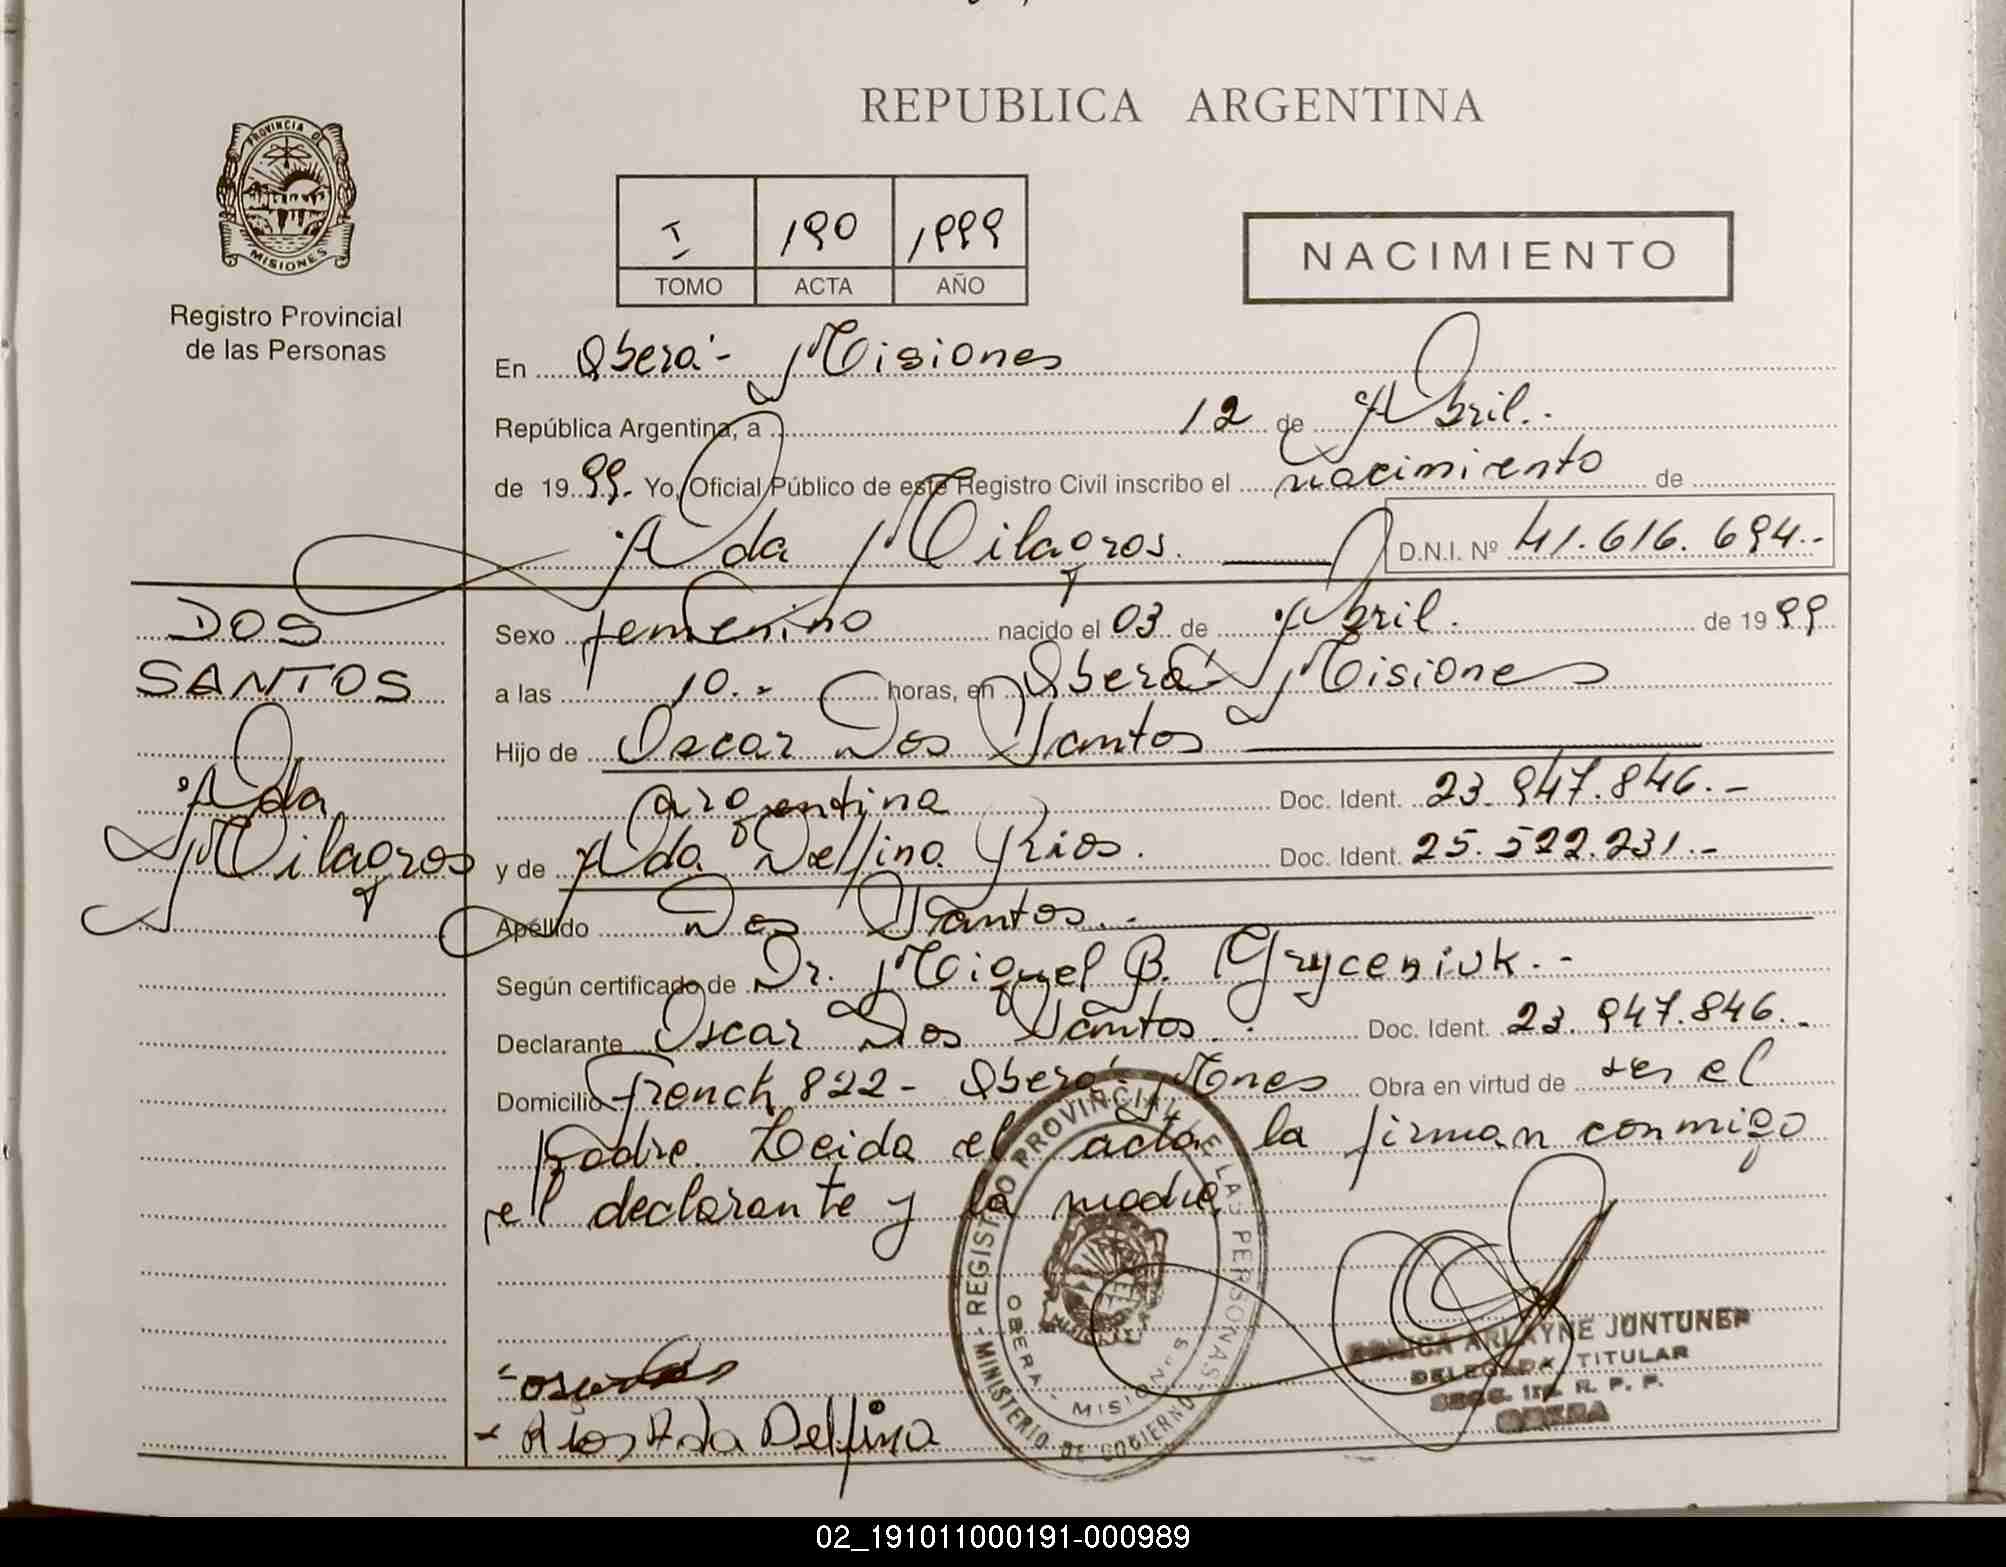 REPUBLICA ARGENTINA
PROVINCIA DE
MISIONES
Registro Provincial
de las Personas
I 190 1999
TOMO ACTA AÑO
NACIMIENTO
En Oberá - Misiones
República Argentina, a 12 de Abril.
de 1999. Yo, Oficial Público de este Registro Civil inscribo el nacimiento de
Ada Milagros. D.N.I. Nº 41.616.694.-
DOS
SANTOS
Ada
Milagros
Sexo femenino nacido el 03 de Abril. de 1999
a las 10.- horas, en Oberá - Misiones
Hijo de Oscar Dos Santos
argentina Doc. Ident. 23.947.846.-
y de Ada Delfina Rios. Doc. Ident. 25.522.231.-
Apellido Dos Santos.-
Según certificado de Dr. Miguel B. Gryceniuk.-
Declarante Oscar Dos Santos. Doc. Ident. 23.947.846.-
Domicilio French 822 - Oberá - Mones Obra en virtud de ser el
padre. Leida el acta la firman conmigo
el declarante y la madre.
REGISTRO PROVINCIAL DE LAS PERSONAS - MINISTERIO DE GOBIERNO -
OBERA - MISIONES
ARLAYNE JUNTUNEN
DELEGADA TITULAR
SECC. 1ra. R. P. P.
OBERA
- Rios Ada Delfina
02_191011000191-000989